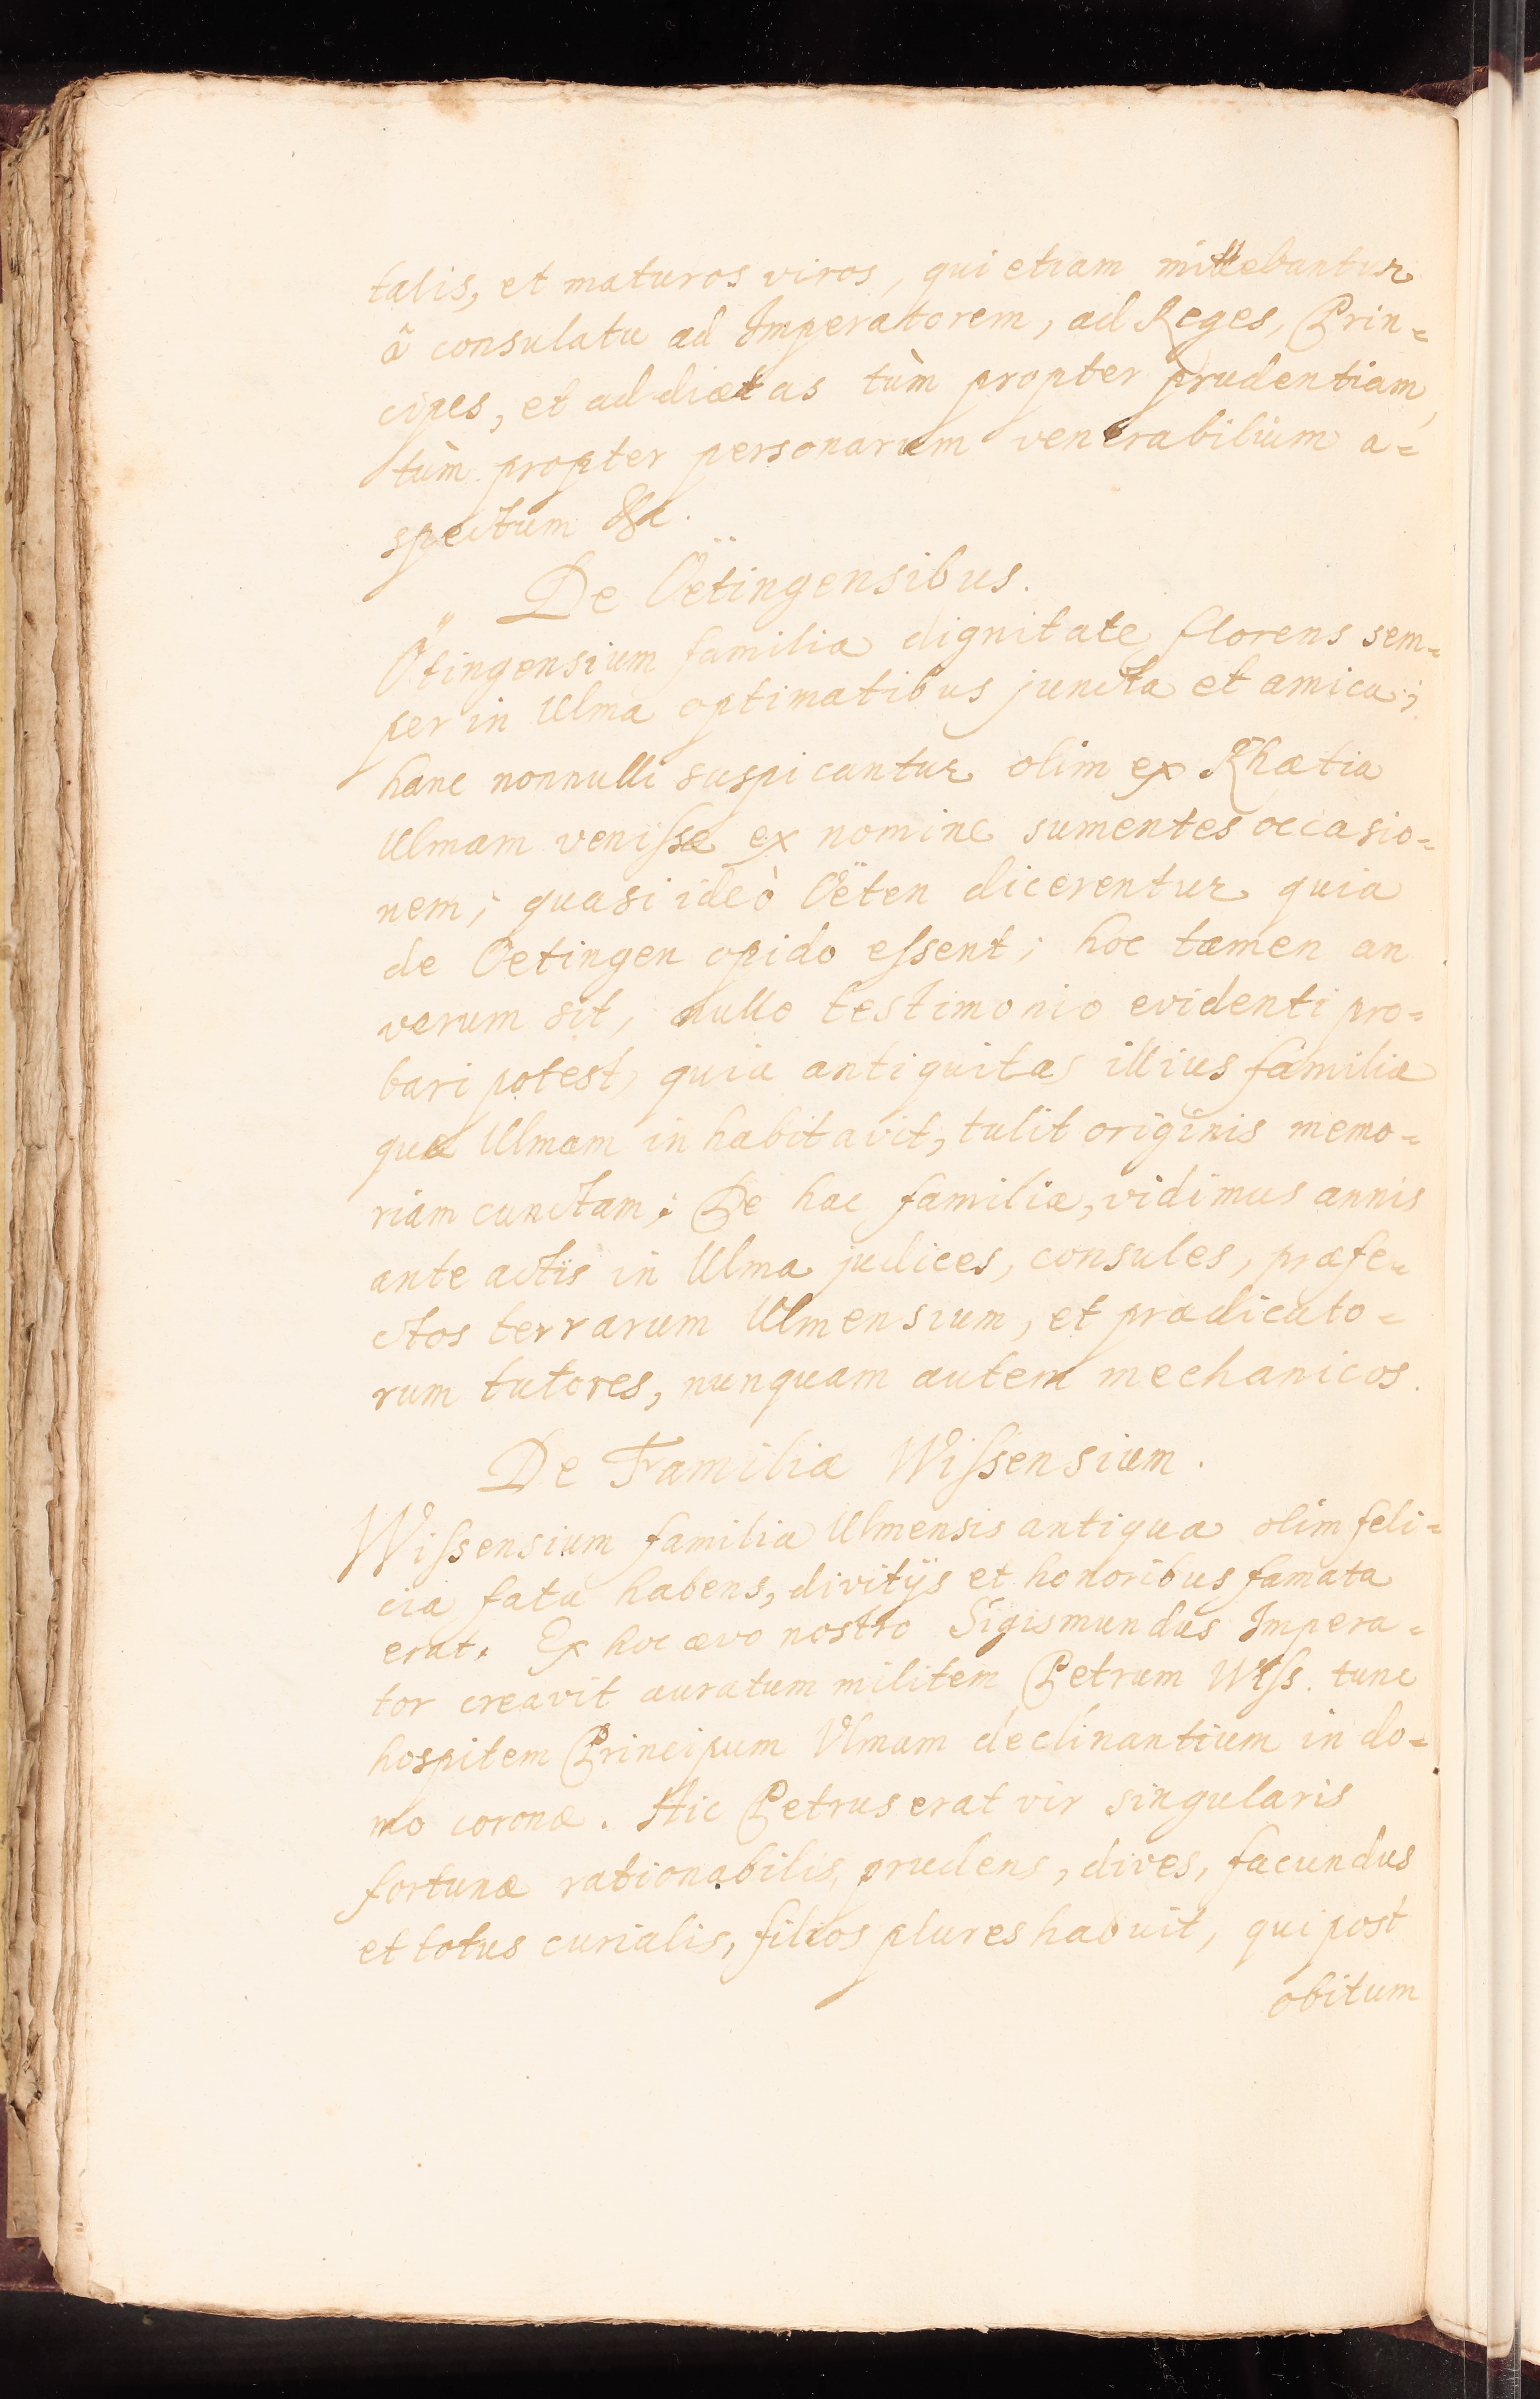 talis, et maturos viros, qui etiam mittebantur
â consulatu ad Imperatorem, ad Reges, Prin=
cipes, et ad diætas tùm propter prudentiam,
tùm propter personarum venerabilium a=
spectum &c.
De Öetingensibus.
Ötingensium familia dignitate florens sem=
per in Ulma optimatibus juncta et amica;
hanc nonnulli suspicantur olim ex Rhætia
Ulmam veniſse ex nomine sumentes occasio=
nem; quasi ideò Öeten dicerentur quia
de Oetingen opido eſsent; hoc tamen an
verum sit, nullo testimonio evidenti pro=
bari potest, quia antiquitas illius familiæ
quæ Ulmam inhabitavit, tulit originis memo=
riam cunctam; De hac familia, vidimus annis
ante actis in Ulma judices, consules, præfe=
ctos terrarum Ulmensium, et prædicato=
rum tutores, nunquam autem mechanicos.
De Familia Wiſsensium.
Wiſsensium familia Ulmensis antiqua olim feli=
cia fata habens, divitijs et honoribus famata
erat. Ex hoc ævo nostro Sigismundus Impera=
tor creavit auratum militem Petrum Wiſs. tunc
hospitem Principum Vlmam declinantium in do=
mo coronæ. Hic Petrus erat vir singularis
fortunæ rationabilis, prudens, dives, facundus
et totus curialis, filios plures habuit, qui post
obitum